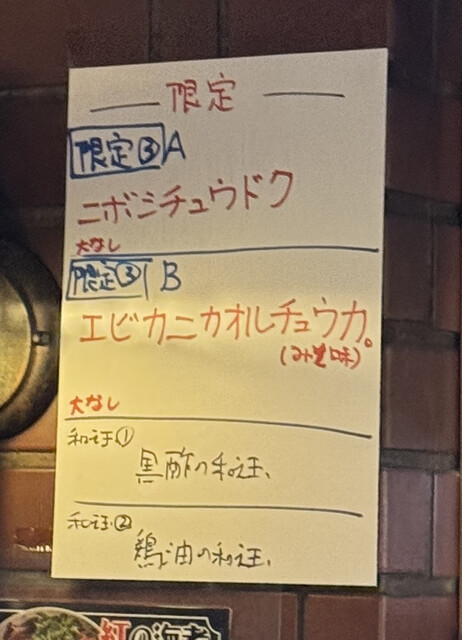 限定
限定③A
ニボシチュウドク
大なし
限定③ B
エビカニカオルチュウカ。
(みそ味)
大なし
和え玉①
黒酢の和え玉、
和え玉②
鶏油の和え玉、
紅の海老